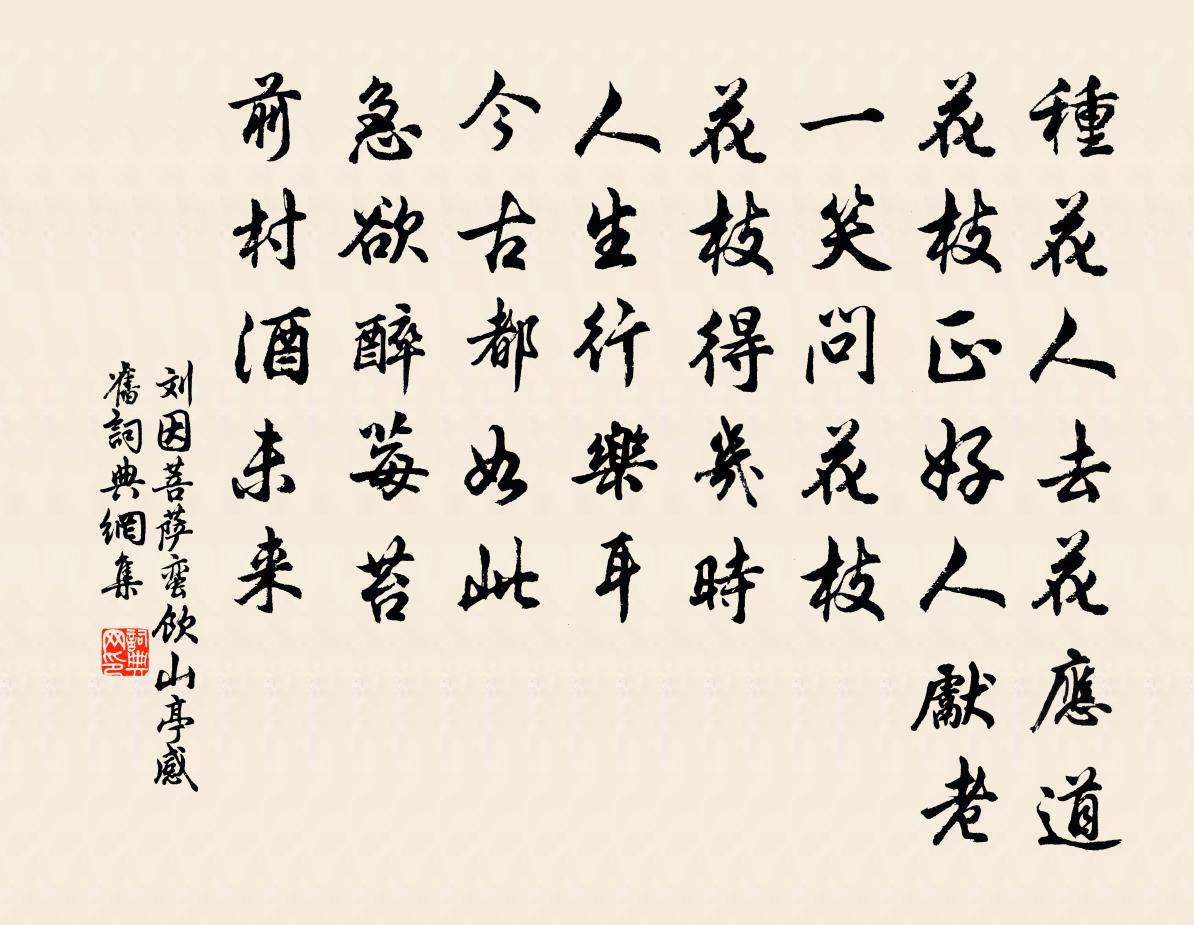 種花人去花應道
花枝正好人獻老
一笑問花枝
花枝得幾時
人生行樂耳
今古都如此
急欲醉莓苔
前村酒未来
刘因菩萨蛮飲山亭感
舊詞典網集
詞典
网印